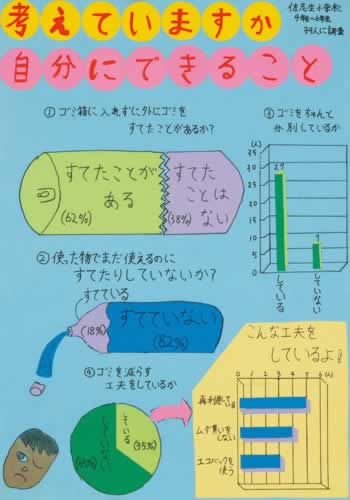 考えていますか
自分にできること
佐志生小学校
4年生〜6年生
34人に調査
① ゴミ箱に入れずに外にゴミを
すてたことがあるか？
すてたことが
ある
(62%)
すてた
ことは
ない
(38%)
② 使った物でまだ使えるのに
すてたりしていないか？
すてている
(18%)
すてていない
(82%)
③ ゴミをちゃんと
分別しているか
(人)
35
30
25
20
15
10
5
0
27
7
している
していない
④ ゴミを減らす
工夫をしているか
している
(35%)
していない
こんな工夫を
しているよ！
0 1 2 3 4 5 6 (人)
再利用して
いる
ムダ買いを
しない
エコバックを
使う